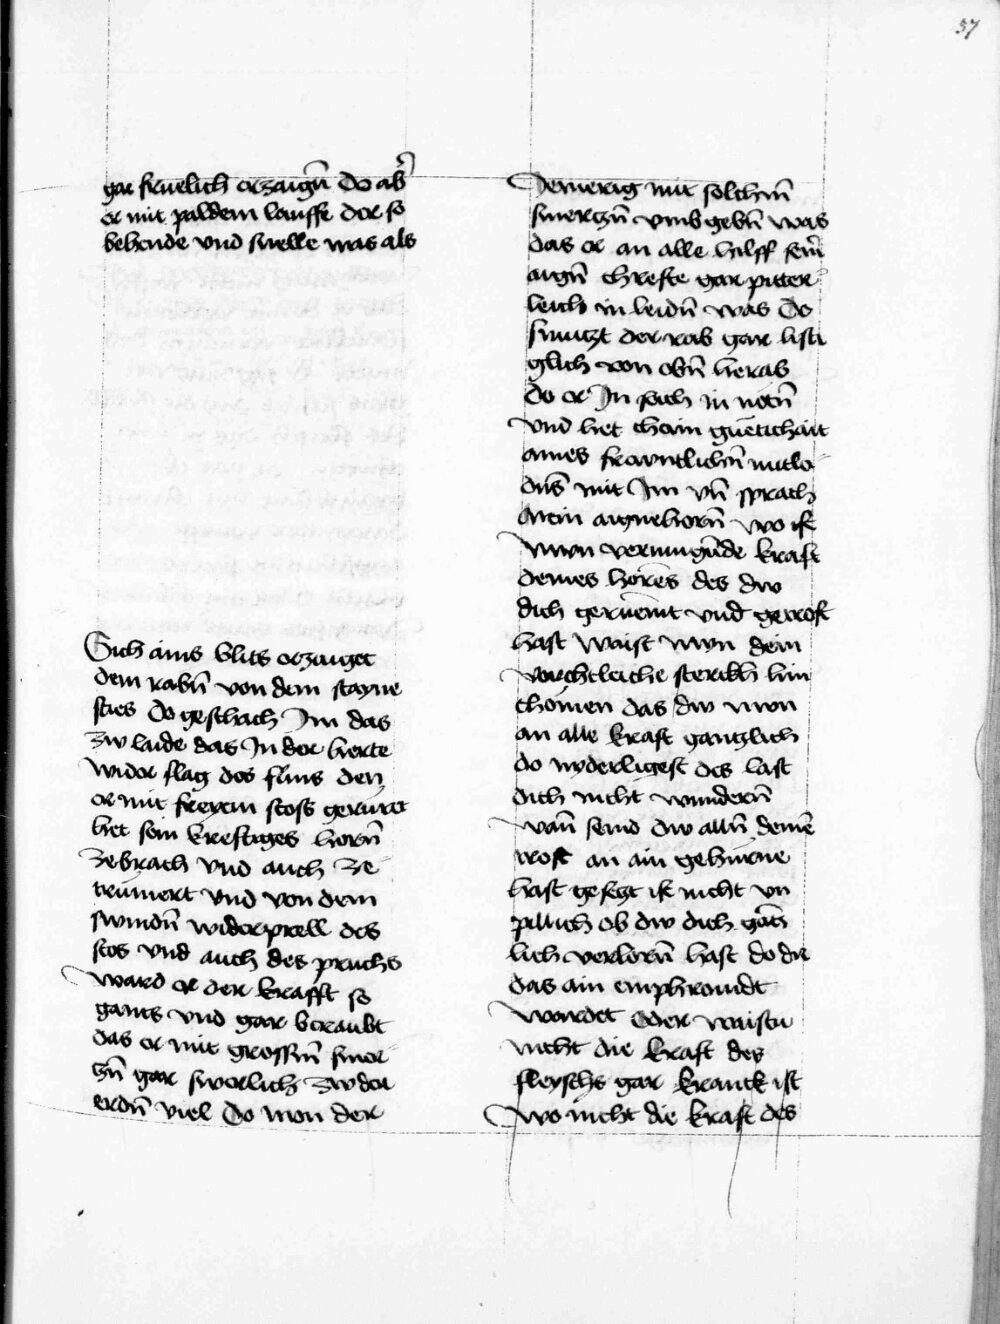 37
gar fruelich erzaigñ do ab̃
er mit paldem lauffe der so
behende vnd snelle was als
Sich ains blits erzaiget
dem rabñ von dem stayne
sties do geschach Im das
zw laide das In der herte
wider slag des flins den
er mit freyem stoss gerüret
het sein kreftiges horñ
zebrach vnd auch ze
trümert vnd von dem
swindñ widerprell des
stos vnd auch des pruchs
ward er der krafft so
gants vnd gar beraubt
das er mit grossñ smer
czñ gar swerlich zw der
erdñ viel do won der
Jemerig mit solchñ
smerczñ vmb gebñ was
das er an alle hilff seiñ
aigñ chrefte gar pitter
leich in leidñ was do
smuczt der rab gar listi
glich von obñ herab
do er In sach in nötñ
vnd het chain guetichait
aines frewntlichñ mitlei
dñs mit Im vñ sprach
Mein aignehorñ wo ist
nwn vermugñde kraft
deines hores des dw
dich geruemt vnd getröst
hast Waist nwn dein
vorchtleiche sterckh hin
chömen das dw nwn
an alle kraft gancglich
do nyderligest des last
dich nicht wundern̄
wañ seind dw allñ deinē
trost an ain gehürne
hast gesetzt ist nicht vn
pillich ob dw dich gēns
lich verlorñ hast do dir
das ain emphrömdt
wardet oder waistu
nicht die kraft des
fleyschs gar kranck ist
wo nicht die kraft des